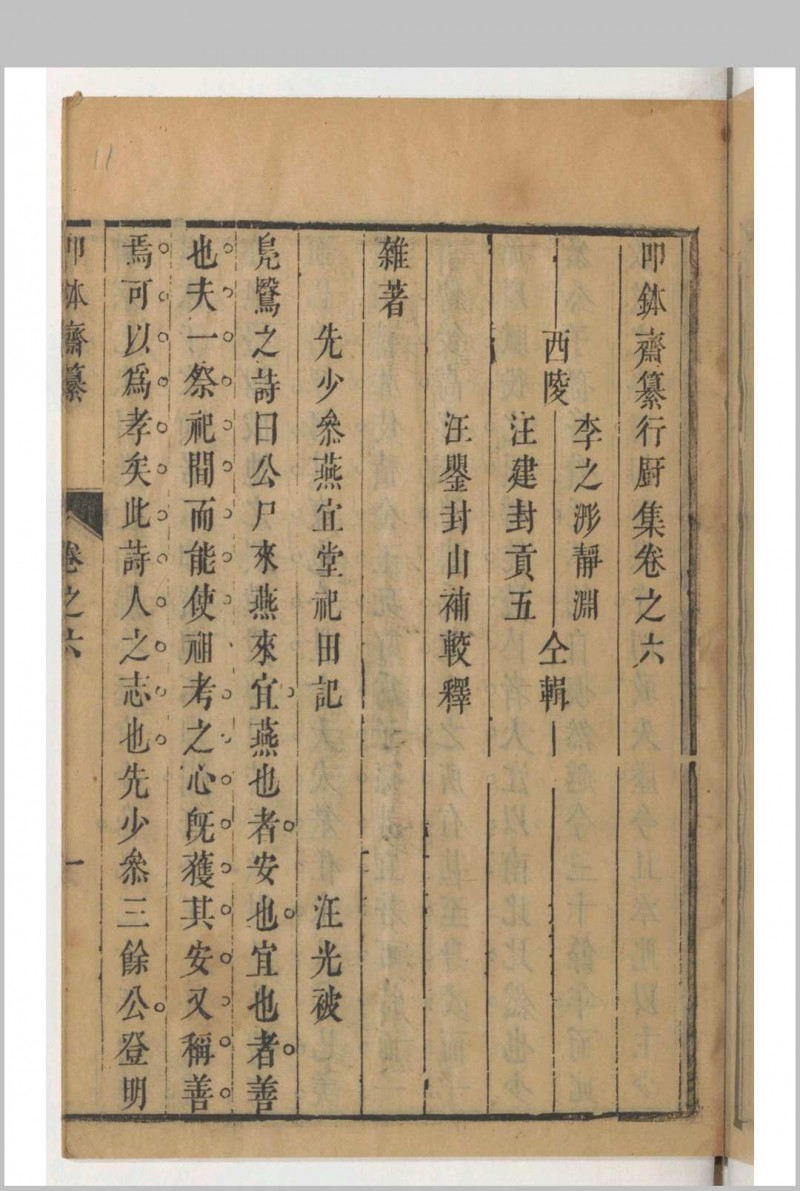 叩鉢齋纂行厨集卷之六
西陵
李之浵靜淵
汪建封貢五
仝輯
汪㽦封山補較釋
雜著
先少叅燕宜堂祀田記 汪光被
鳧鷖之詩曰公尸來燕來宜燕也者安也宜也者善
也夫一祭祀間而能使祖考之心旣獲其安又稱善
焉可以爲孝矣此詩人之志也先少叅三餘公登明
叩鉢齋纂
卷之六
一
11